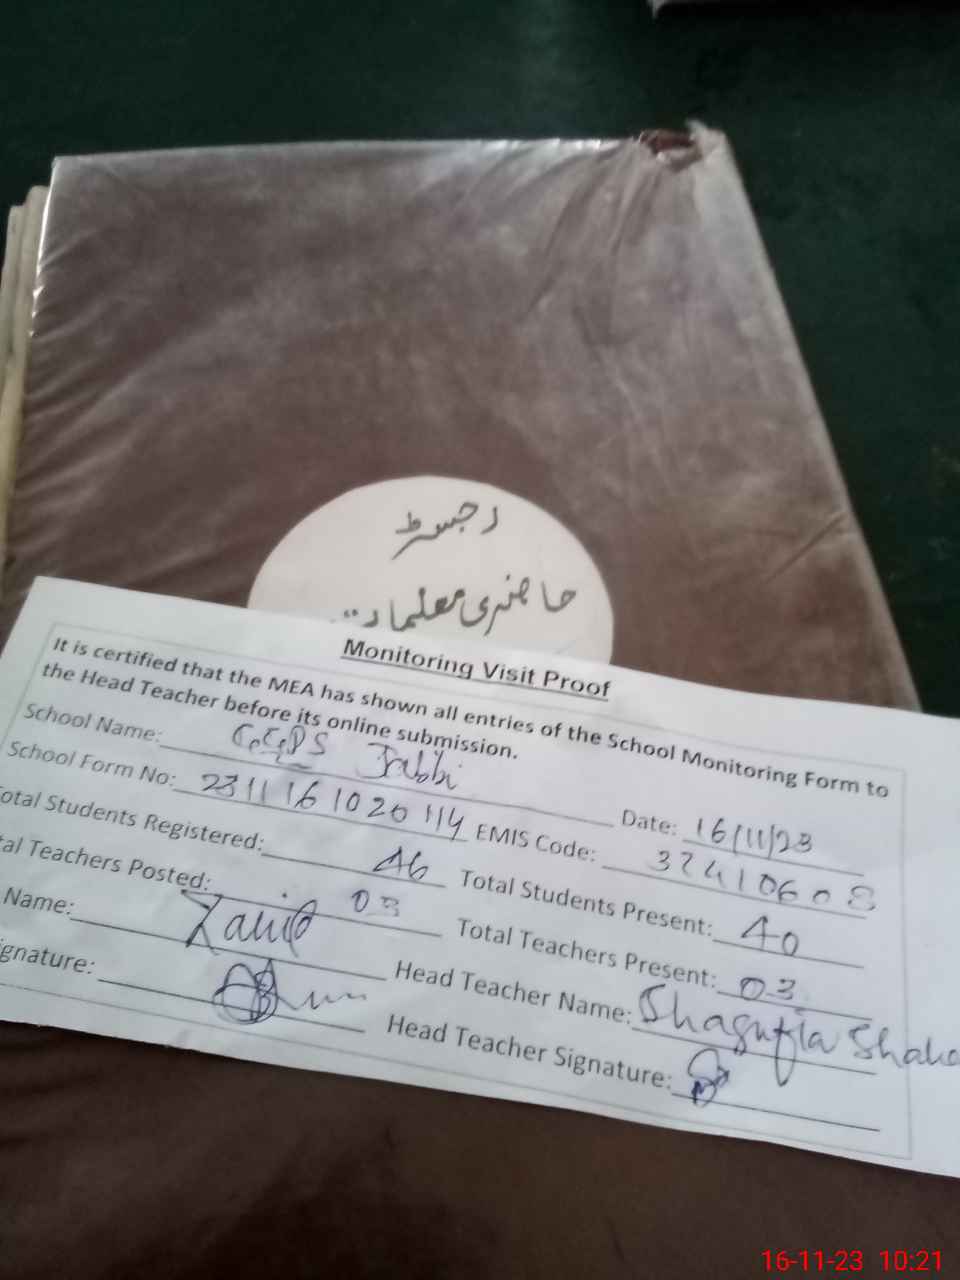 رجسٹر
حاضری معلمات
Monitoring Visit Proof
It is certified that the MEA has shown all entries of the School Monitoring Form to
the Head Teacher before its online submission.
School Name: GGPS Jabbi Date: 16/11/23
School Form No: 2311161020114 EMIS Code: 37410608
otal Students Registered: 46 Total Students Present: 40
tal Teachers Posted: 03 Total Teachers Present: 03
Name: Head Teacher Name: Shagufta
ignature: Head Teacher Signature:
16-11-23 10:21